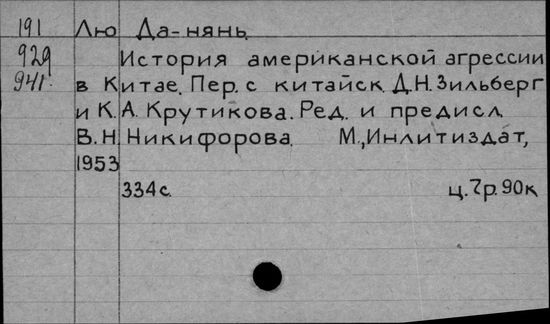 191 Лю Да-нянь.
929 История американской агрессии
941. в Китае. Пер. с китайск. Д.Н. Зильберг
и К.А. Крутикова. Ред. и предисл.
В.Н. Никифорова. М., Инлитиздат,
1953
334 с. ц. 7 р. 90 к